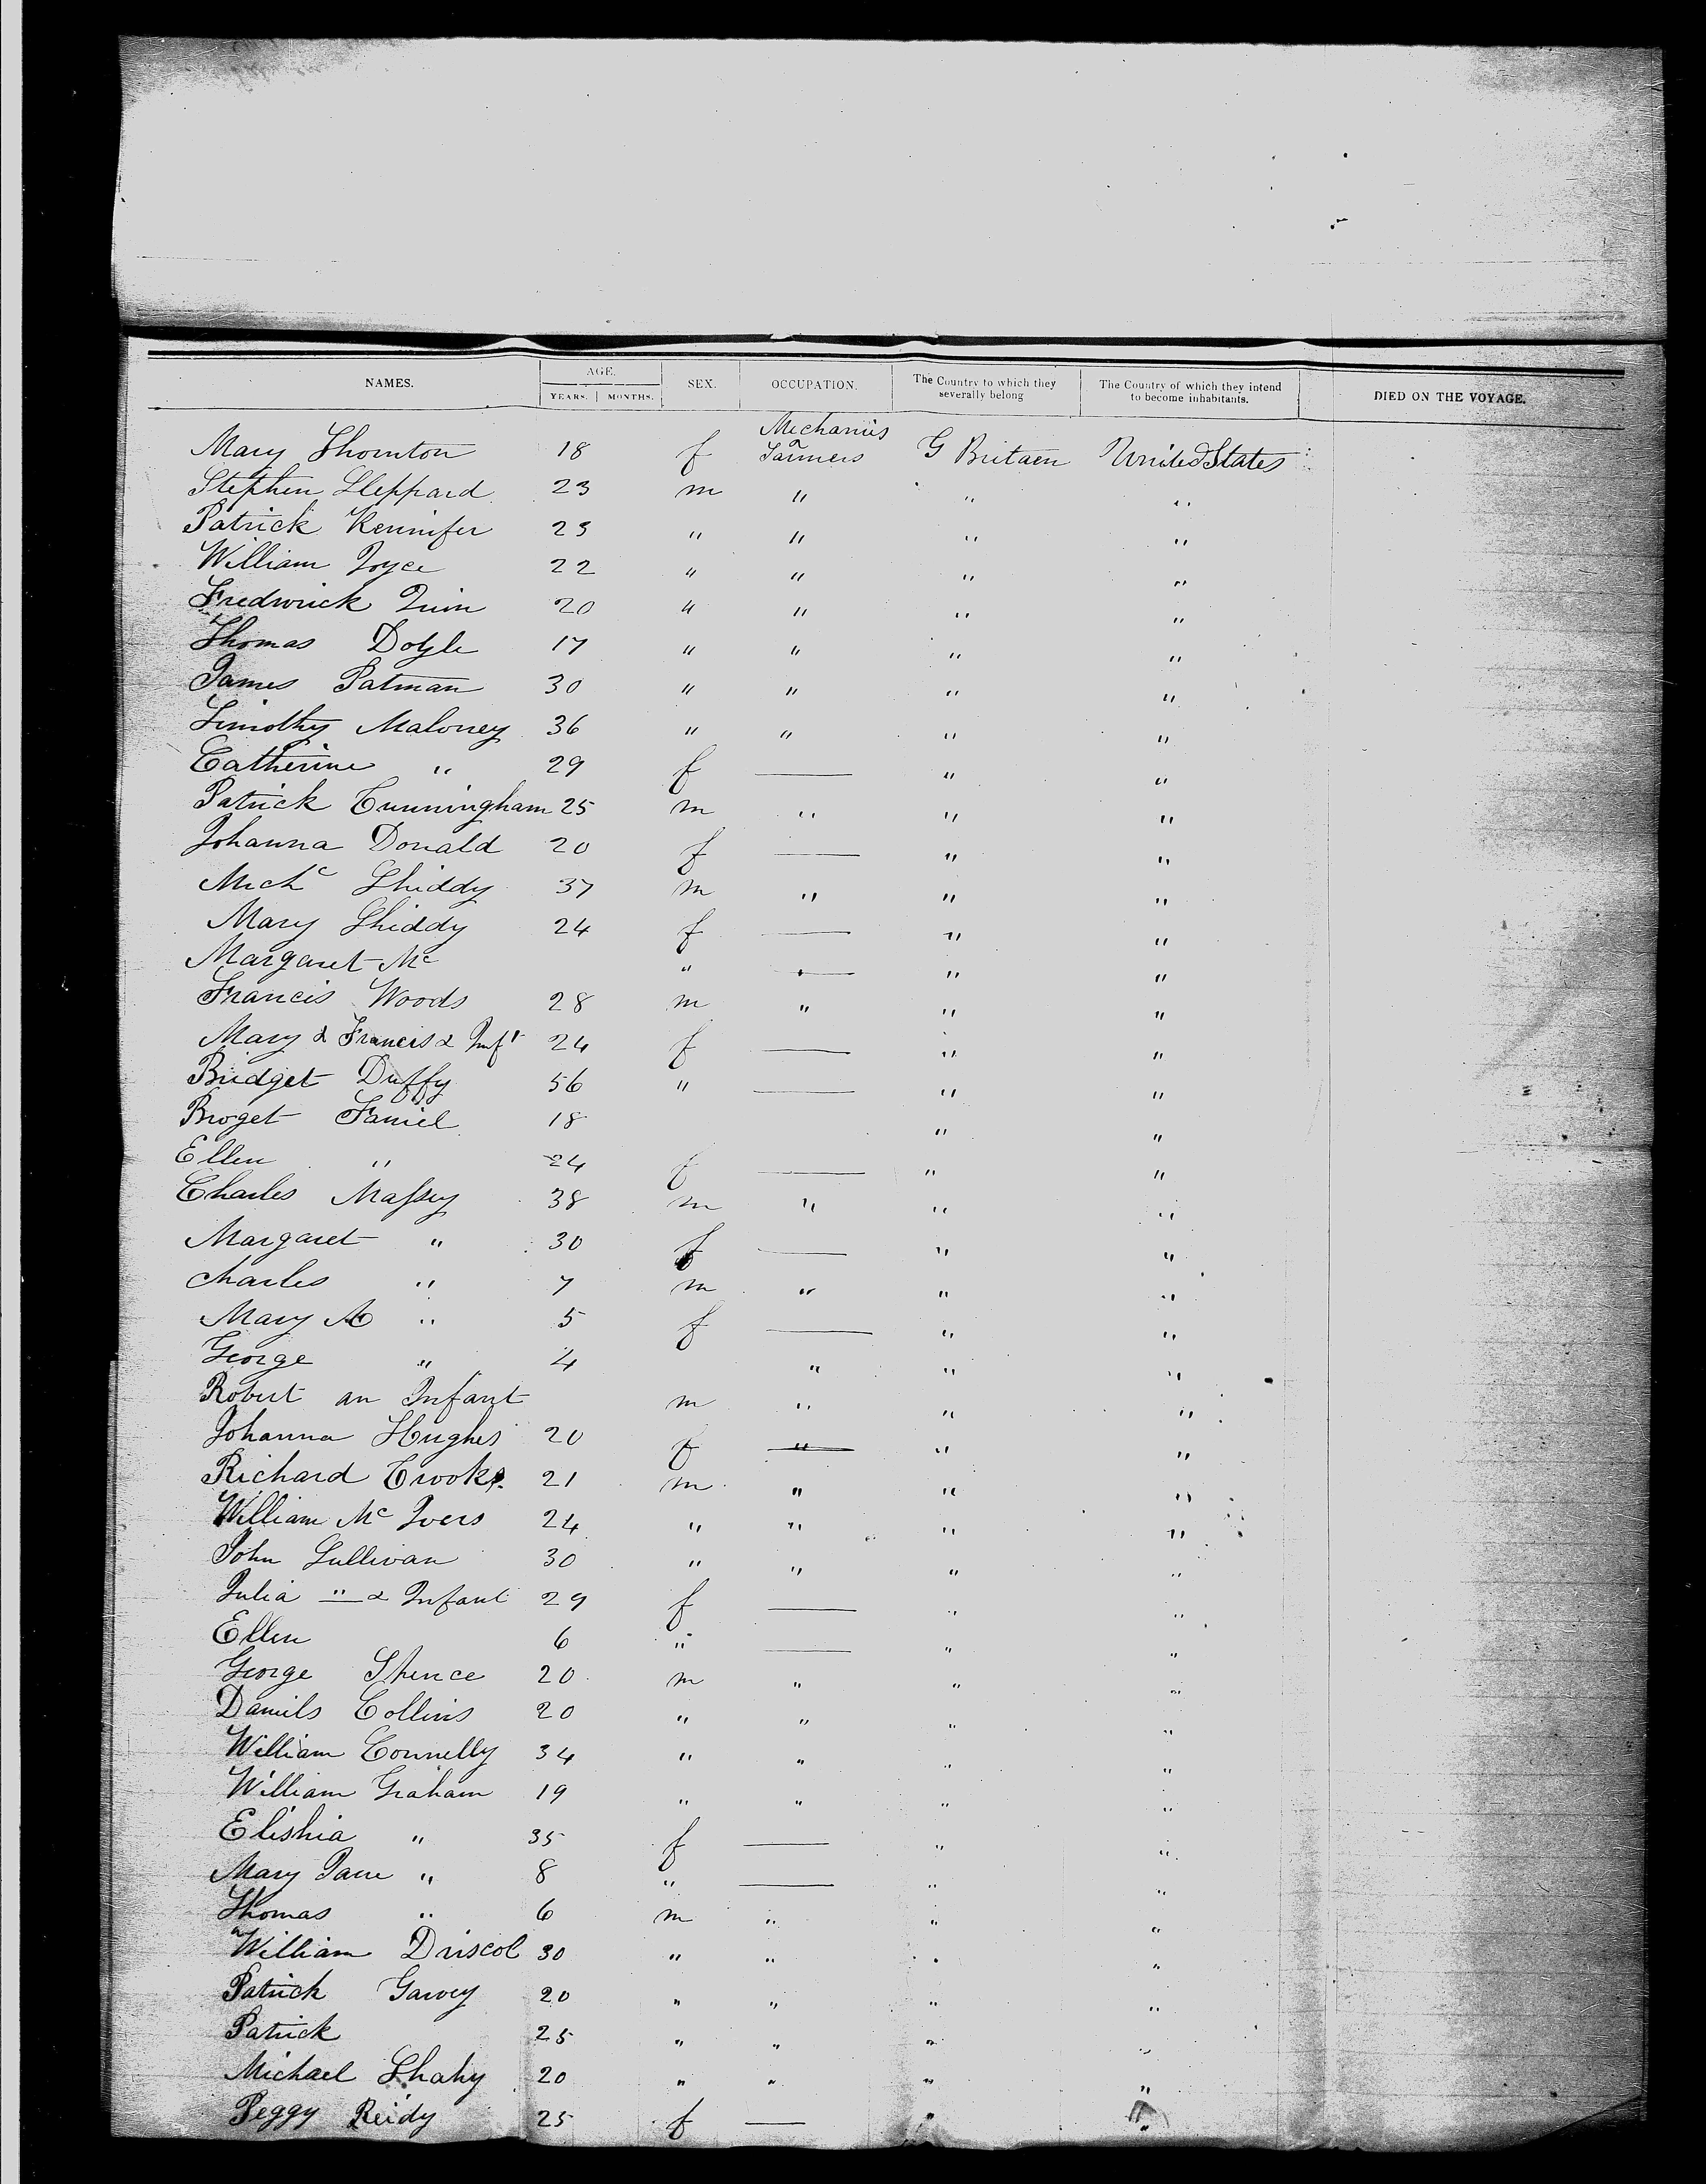 NAMES. AGE. YEARS. MONTHS. SEX. OCCUPATION. The Country to which they severally belong The Country of which they intend to become inhabitants. DIED ON THE VOYAGE.
Mechanics
Mary Thornton 18 f Farmers G Britaen United States
Stephen Sleppard 23 m " " "
Patrick Kennifer 23 " " " "
William Joyce 22 " " " "
Fredwrick Quin 20 " " " "
Thomas Doyle 17 " " " "
James Patman 30 " " " "
Timothy Maloney 36 " " " "
Catherine " 29 f — " "
Patrick Cunningham 25 m " " "
Johanna Donald 20 f — " "
Michc Shiddy 37 m " " "
Mary Shiddy 24 f — " "
Margaret Mc " — " "
Francis Woods 28 m " " "
Mary & Francis & Inft 24 f — " "
Bridget Duffy 56 " — " "
Broget Faniel 18 " "
Ellen " 24 f — " "
Charles Massey 38 m " " "
Margaret " 30 f — " "
Charles " 7 m " " "
Mary A " 5 f — " "
George " 4 " " "
Robert an Infant m " " "
Johanna Hughes 20 f — " "
Richard Crooks 21 m " " "
William Mc Ivers 24 " " " "
John Sullivan 30 " " " "
Julia " & Infant 29 f — " "
Ellen 6 " — " "
George Spence 20 m " " "
Daniels Collins 20 " " " "
William Connelly 34 " " " "
William Graham 19 " " " "
Elishia " 35 f — " "
Mary Jane " 8 " — " "
Thomas " 6 m " " "
William Driscol 30 " " " "
Patrick Garvey 20 " " " "
Patrick 25 " " " "
Michael Shahy 20 " " " "
Peggy Reidy 25 f — " "